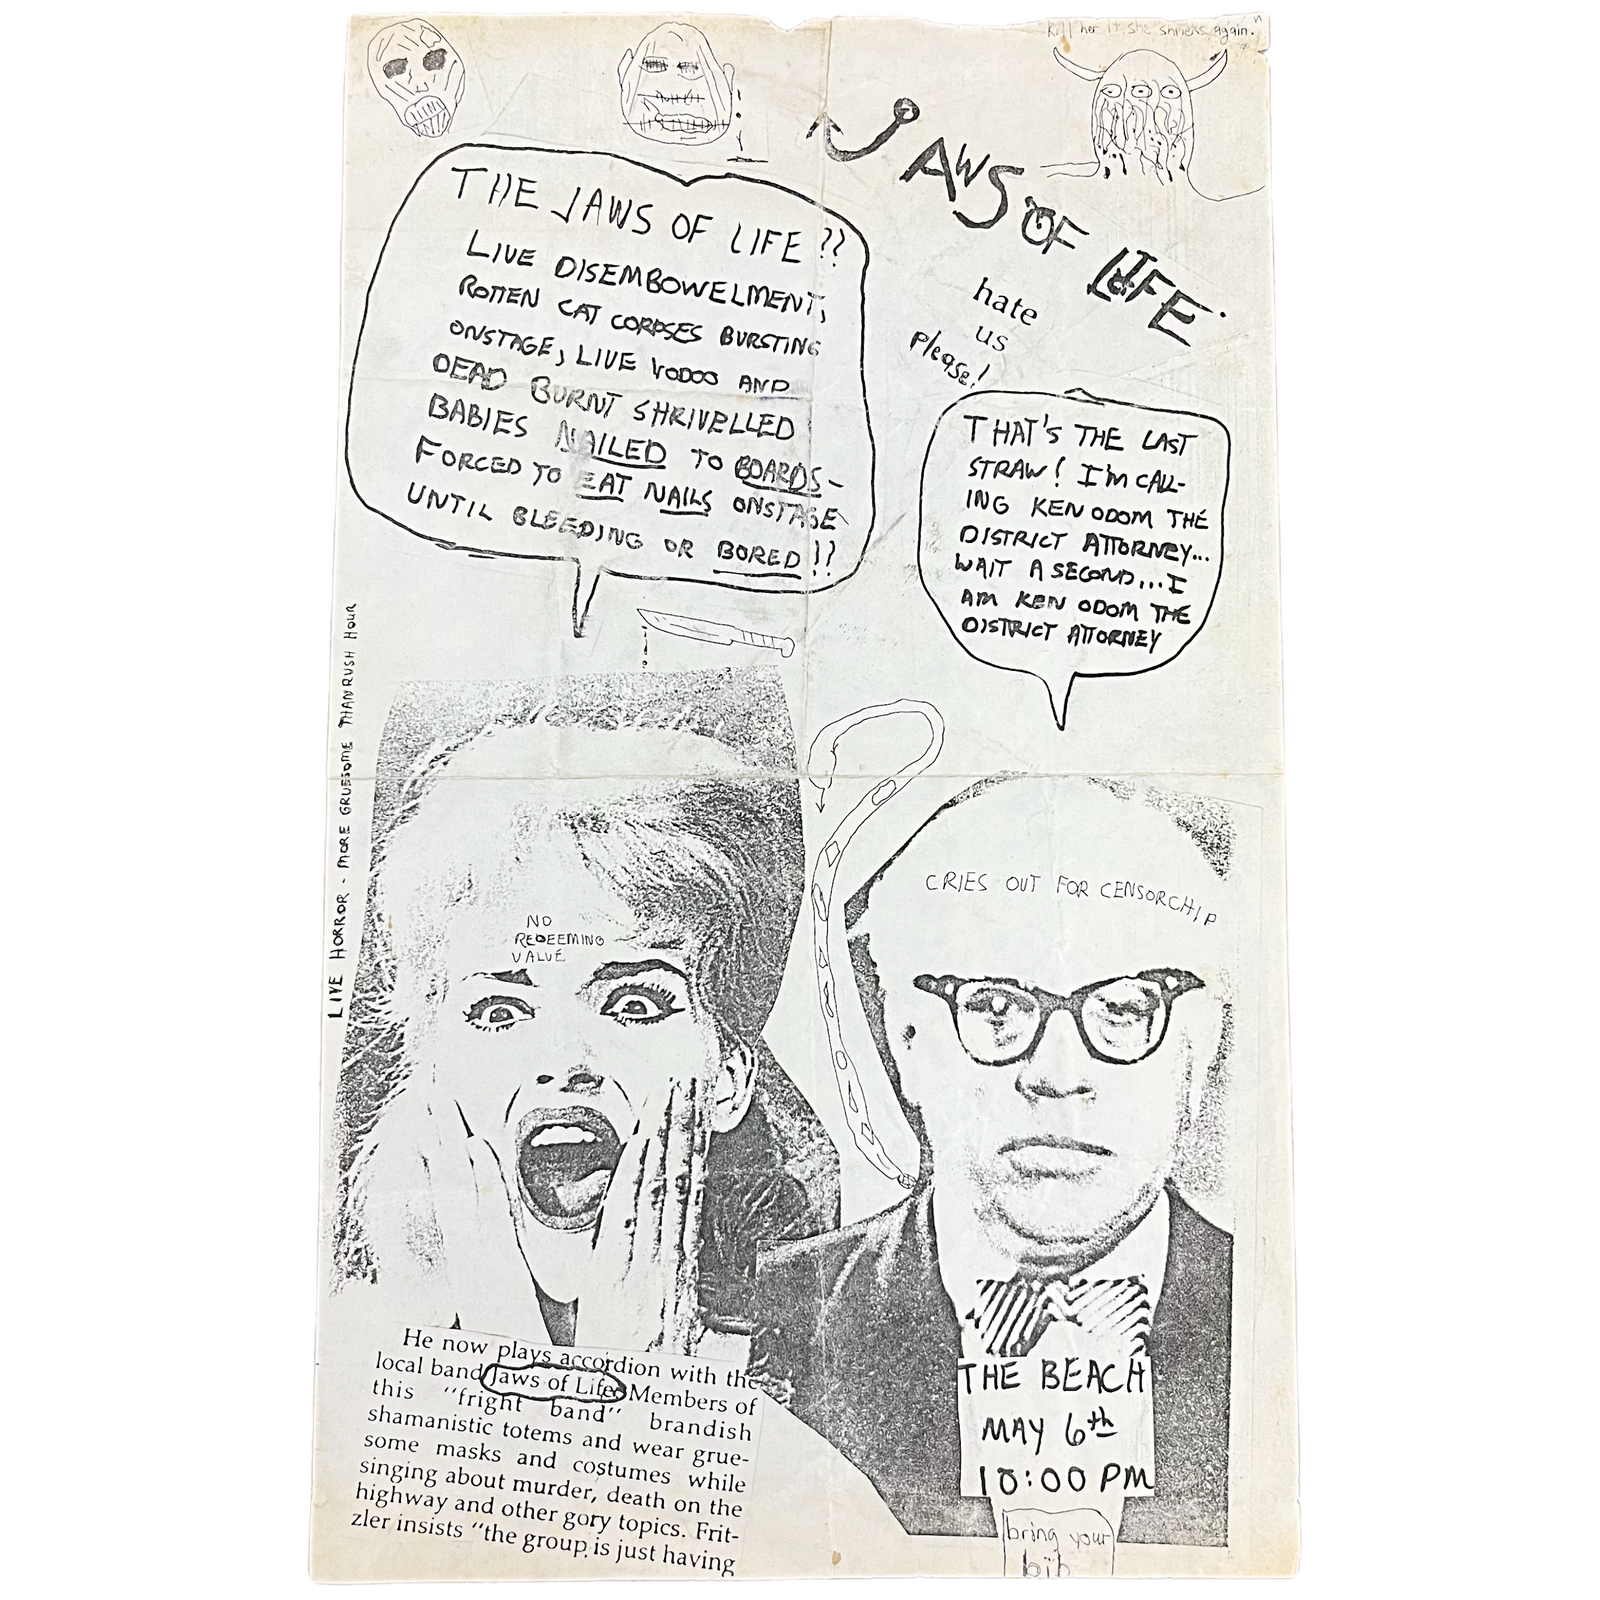 "Kill her if she shrieks again."
JAWS OF LIFE
hate
us
please!
THE JAWS OF LIFE ??
LIVE DISEMBOWELMENT,
ROTTEN CAT CORPSES BURSTING
ONSTAGE, LIVE VODOO AND
DEAD BURNT SHRIVELLED
BABIES NAILED TO BOARDS-
FORCED TO EAT NAILS ONSTAGE
UNTIL BLEEDING OR BORED!!
THAT'S THE LAST
STRAW! I'M CALL-
ING KEN ODOM THE
DISTRICT ATTORNEY...
WAIT A SECOND...I
AM KEN ODOM THE
DISTRICT ATTORNEY
LIVE HORROR - MORE GRUESOME THAN RUSH HOUR
NO
REDEEMING
VALUE
CRIES OUT FOR CENSORCHIP
He now plays accordion with the
local band Jaws of Life. Members of
this "fright band" brandish
shamanistic totems and wear grue-
some masks and costumes while
singing about murder, death on the
highway and other gory topics. Frit-
zler insists "the group is just having
THE BEACH
MAY 6th
10:00 PM
bring your
bib